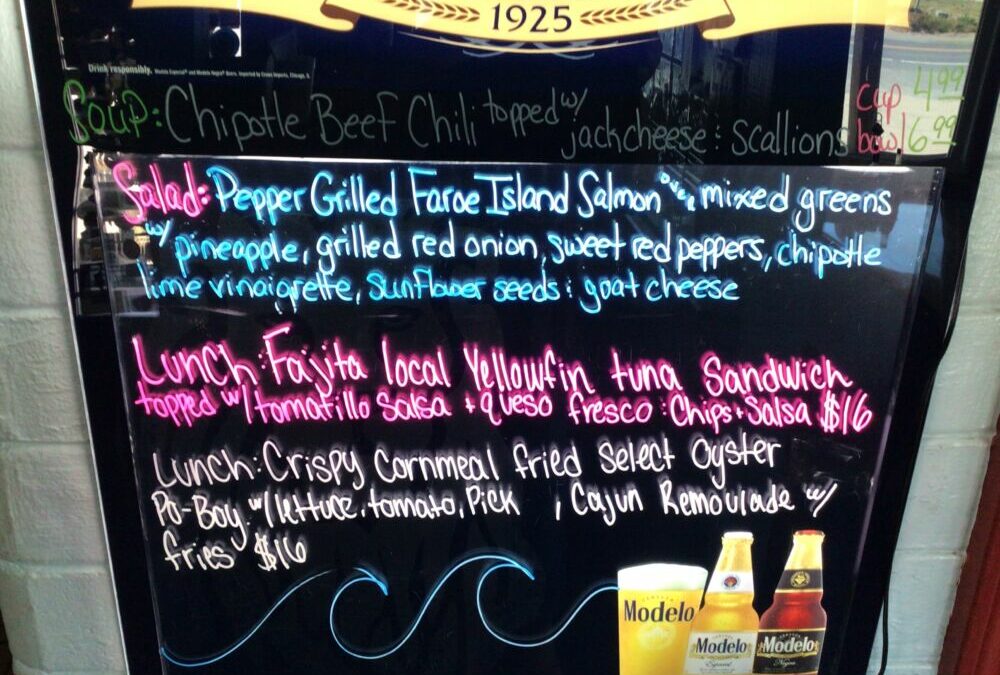 1925
Drink responsibly. Modelo Especial® and Modelo Negra® Beers. Imported by Crown Imports, Chicago, IL
Soup: Chipotle Beef Chili topped w/ jackcheese : Scallions cup 4.99
bowl 6.99
Salad: Pepper Grilled Faroe Island Salmon over mixed greens
w/ pineapple, grilled red onion, sweet red peppers, chipotle
lime vinaigrette, sunflower seeds : goat cheese
Lunch: Fajita local Yellowfin tuna Sandwich
topped w/ tomatillo Salsa + queso fresco : Chips + Salsa $16
Lunch: Crispy Cornmeal fried Select Oyster
Po-Boy w/ lettuce, tomato, Pick , Cajun Remoulade w/
fries $16
Modelo
Modelo
Especial
Modelo
Negra